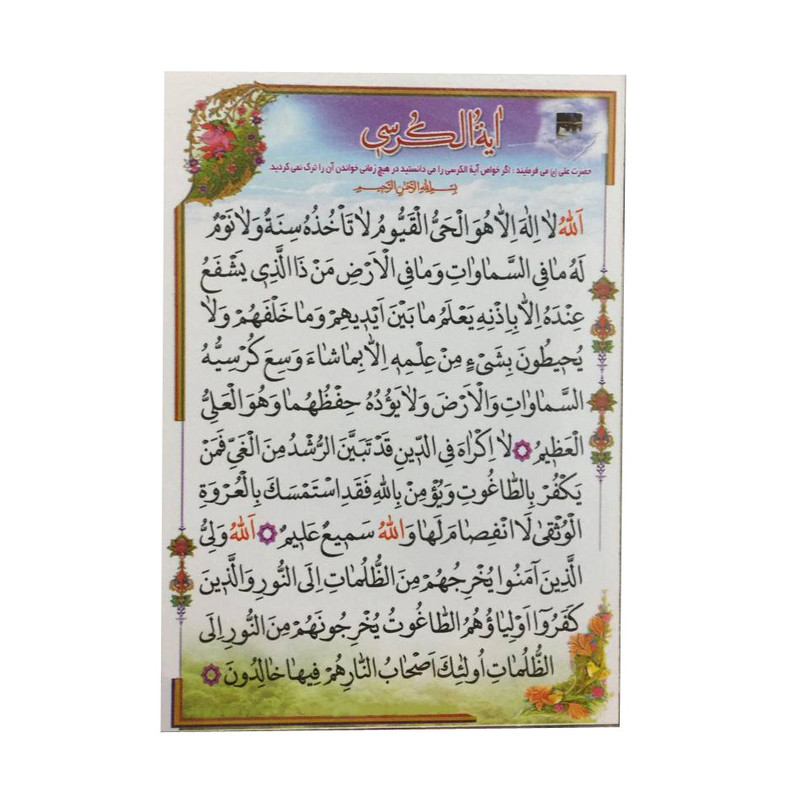 آیة الکرسی
حضرت علی (ع) می فرمایند : اگر خواص آیة الکرسی را می دانستید در هیچ زمانی خواندن آن را ترک نمی کردید.
بِسْمِ اللهِ الرَّحْمٰنِ الرَّحِیمِ
اَللهُ لَا اِلٰهَ اِلَّا هُوَ الْحَیُّ الْقَیُّومُ لَا تَأْخُذُهُ سِنَةٌ وَلَا نَوْمٌ
لَهُ مَا فِی السَّمَاوَاتِ وَمَا فِی الْاَرْضِ مَنْ ذَا الَّذِی یَشْفَعُ
عِنْدَهُ اِلَّا بِاِذْنِهِ یَعْلَمُ مَا بَیْنَ اَیْدِیهِمْ وَمَا خَلْفَهُمْ وَلَا
یُحِیطُونَ بِشَیْءٍ مِنْ عِلْمِهِ اِلَّا بِمَا شَاءَ وَسِعَ کُرْسِیُّهُ
السَّمَاوَاتِ وَالْاَرْضَ وَلَا یَؤُدُهُ حِفْظُهُمَا وَهُوَ الْعَلِیُّ
الْعَظِیمُ لَا اِکْرَاهَ فِی الدِّینِ قَدْ تَبَیَّنَ الرُّشْدُ مِنَ الْغَیِّ فَمَنْ
یَکْفُرْ بِالطَّاغُوتِ وَیُؤْمِنْ بِاللهِ فَقَدِ اسْتَمْسَكَ بِالْعُرْوَةِ
الْوُثْقٰی لَا انْفِصَامَ لَهَا وَاللهُ سَمِیعٌ عَلِیمٌ اَللهُ وَلِیُّ
الَّذِینَ آمَنُوا یُخْرِجُهُمْ مِنَ الظُّلُمَاتِ اِلَی النُّورِ وَالَّذِینَ
کَفَرُوا اَوْلِیَاؤُهُمُ الطَّاغُوتُ یُخْرِجُونَهُمْ مِنَ النُّورِ اِلَی
الظُّلُمَاتِ اُولٰئِكَ اَصْحَابُ النَّارِ هُمْ فِیهَا خَالِدُونَ